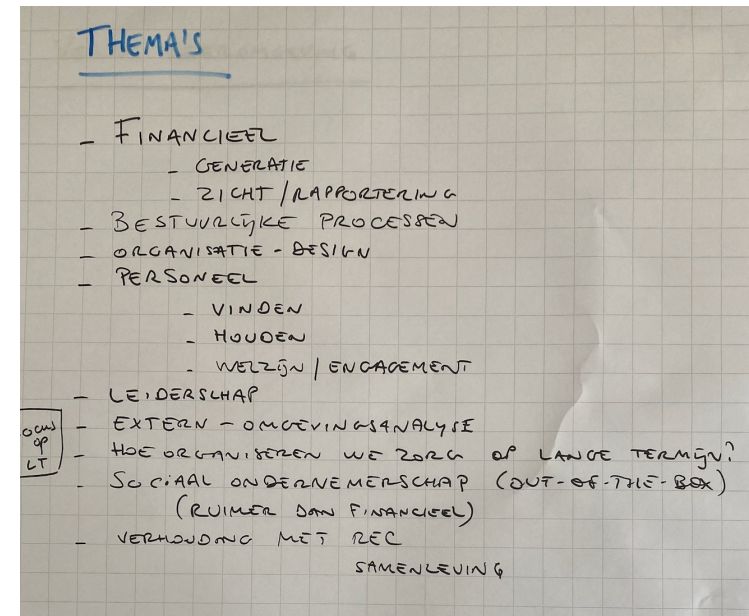 THEMA'S
- FINANCIEEL
- GENERATIE
- ZICHT/RAPPORTERING
- BESTUURLIJKE PROCESSEN
- ORGANISATIE-DESIGN
- PERSONEEL
- VINDEN
- HOUDEN
- WELZIJN/ENGAGEMENT
- LEIDERSCHAP
- EXTERN-OMGEVINGSANALYSE
- HOE ORGANISEREN WE ZORG OP LANGE TERMIJN?
- SOCIAAL ONDERNEMERSCHAP (OUT-OF-THE-BOX)
(RUIMER DAN FINANCIEEL)
- VERHOUDING MET REC
SAMENLEVING
op
LT